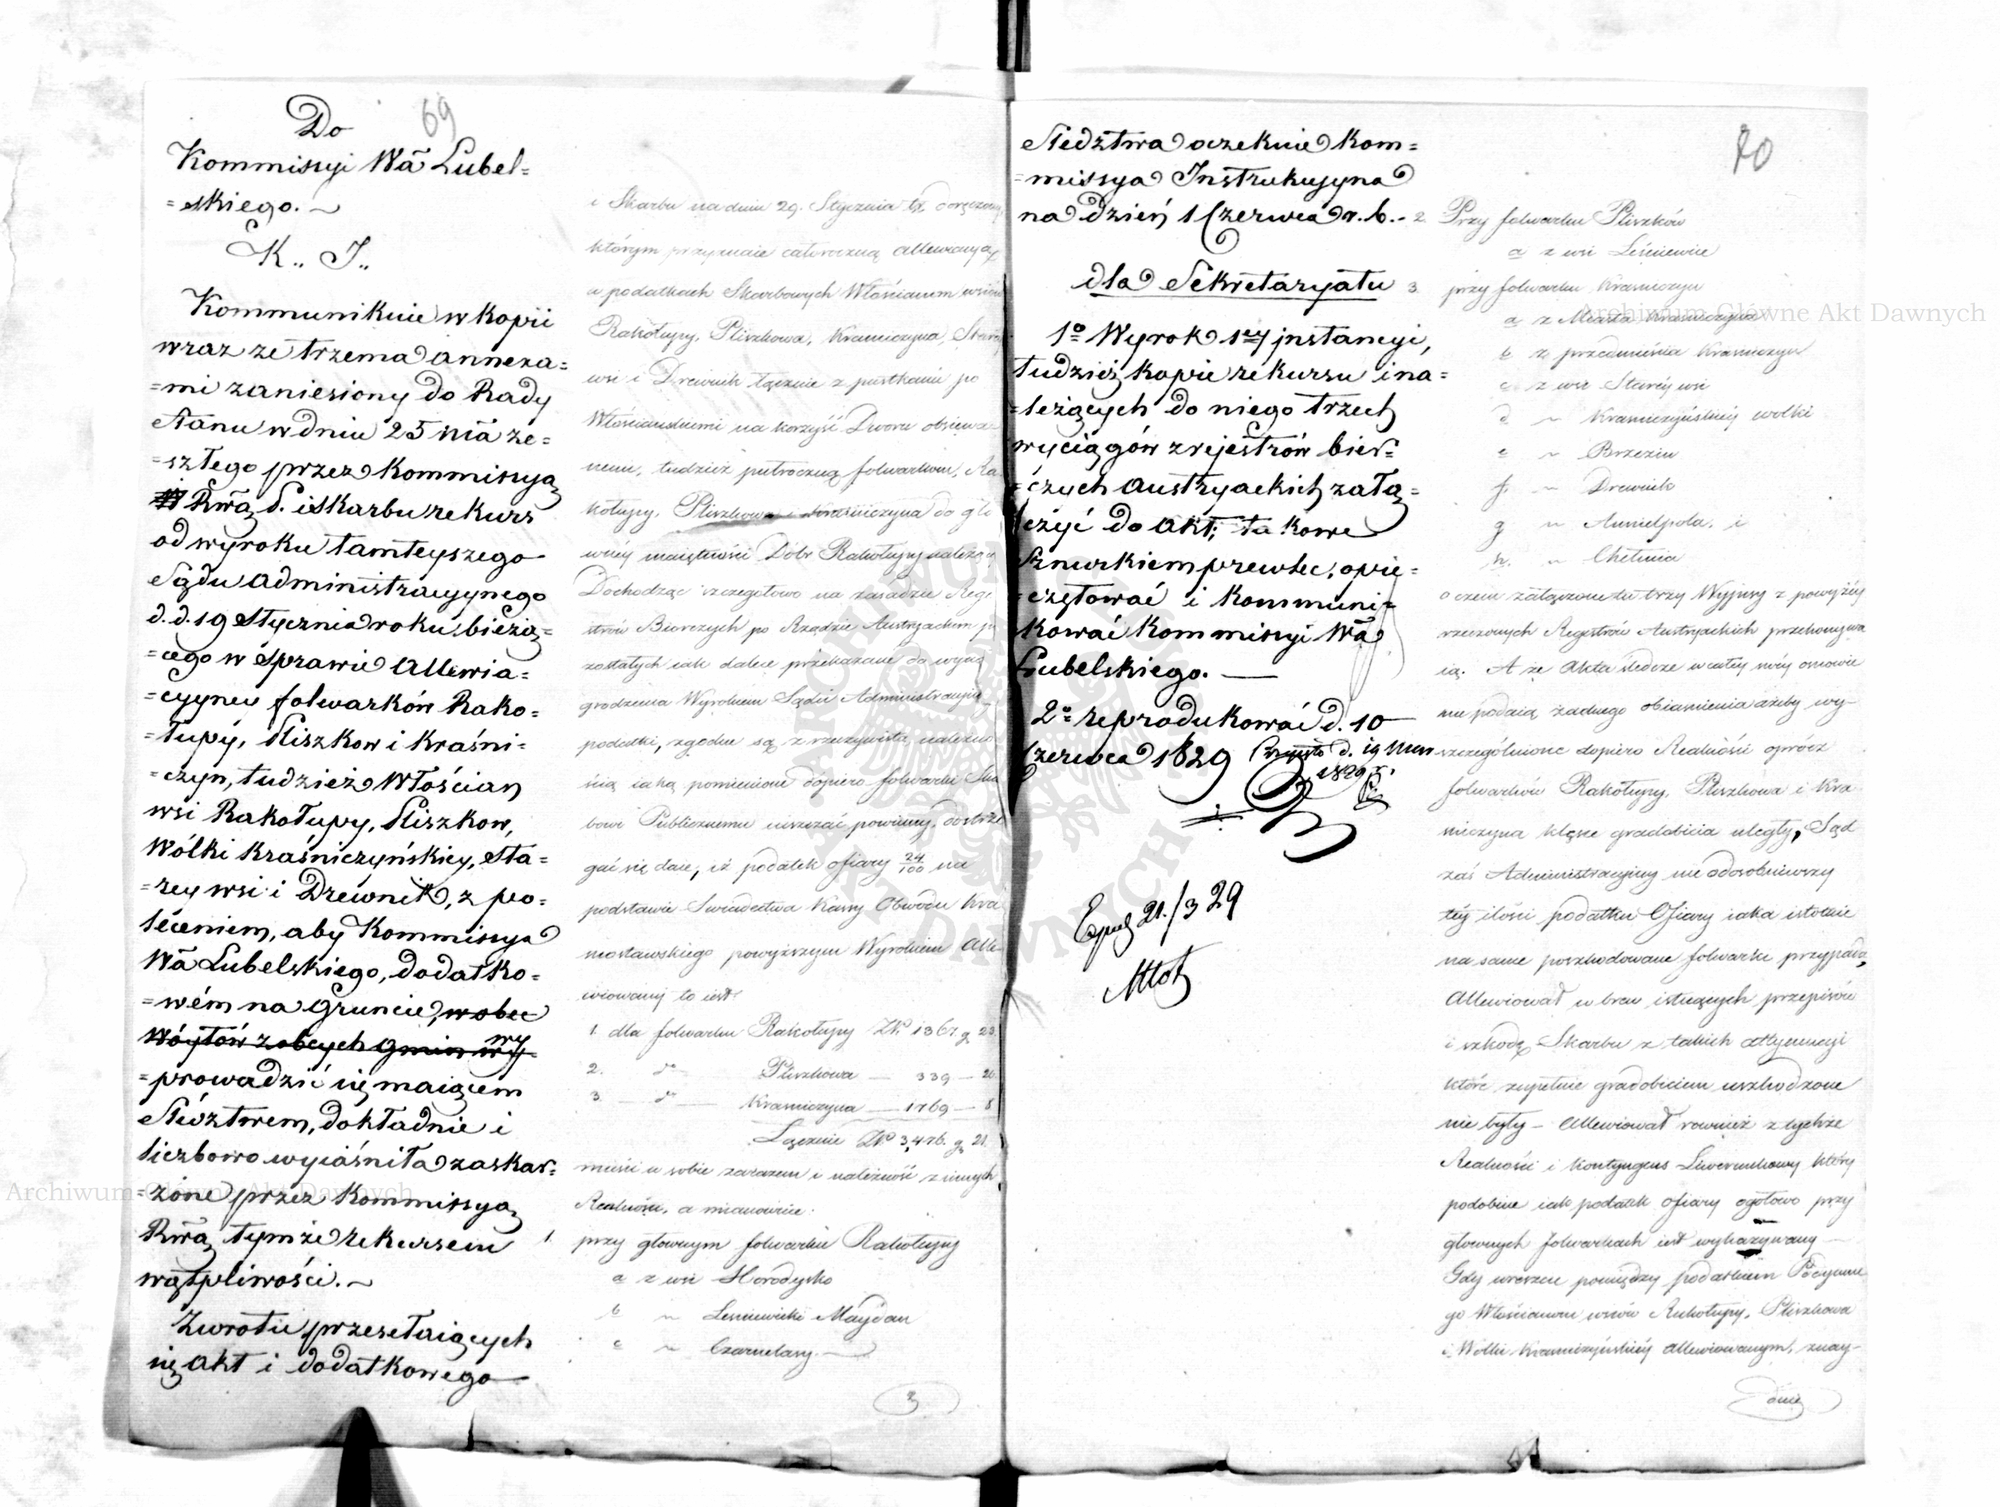 69
Do
Kommissyi Wa Lubel=
=skiego.
K., J.,
Kommunikuie w kopii
wraz ze trzema annexa=
=mi zaniesiony do Rady
Stanu w dniu 25 ma ze=
=szłego przez Kommissyą
Rwą S. i Skarbu rekurs
od wyroku tamteyszego
Sądu Administracyynego
d.d. 19 Stycznia roku bieżą=
=cego w sprawie Allewia=
=cyyney folwarków Rako=
=łupy, Pliszkow i Kraśni=
=czyn, tudzież Włościan
wsi Rakołupy, Pliszkow,
Wólki Kraśniczyńskiey, Sta=
=rey wsi i Drewnik, z po=
=leceniem, aby Kommissya
Wa Lubelskiego, dodatko=
=wém na gruncie, wobec
Wóytów z obcych gmin wy
=prowadzić się maiącem
Śledztwem, dokładnie i
liczbowo wyiaśniła zaskar=
=żone przez Kommissyą
Rwą tymże rekursem
wątpliwości.
Zwrotu przesełaiących
się akt i dodatkowego
i Skarbu na dniu 29. Stycznia
którym przyznaie całoroczną allewiacyą
w podatkach Skarbowych Włościanom wsiów
Rakołupy, Pliszkowa, Kraniczyna, Starey
wsi i Drewnik łącznie z pustkami po
Włościańskiemi na korzyść Dworu obsiewa
nemi, tudzież półroczną folwarkom, Ra
kołupy, Pliszkowa i Kraniczyna do głó
wney maiętności Dóbr Rakołupy należący
Dochodząc szczegółowo na zasadzie Reie
strów Biorczych po Rządzie Austryackim po
zostałych iak dalece przekazane do wyna
grodzenia Wyrokiem Sądu Administracyiny
podatki, zgodne są z rzeczywistą należno
ścią iaką pomienione dopiero folwarki Skar
bowi Publicznemu uiszczać powinny, dostrze
gać się daie, iż podatek ofiary 24/100 na
podstawie Świadectwa Kassy Obwodu Kra
snostawskiego powyższym Wyrokiem Alle
wiowany to iest:
1. dla folwarku Rakołupy Złp 1367. g 23
2. do Pliszkowa — 339 — 20
3. — do — Kraniczyna — 1769 — 8
Łącznie Złp 3,476. g 21.
mieści w sobie zarazem i należność z innych
Realności, a mianowicie:
1. przy głownym folwarku Rakołupy
a z wsi Horodysko
b " Leśniewicki Maydan
c " Czarnelasy.
3
20
Śledztwa oczekuie Kom=
=missya Instrukcyyna
na dzień 1 Czerwca r. b.
dla Sekretaryatu
1º Wyrok 1ey instancyi,
tudzież kopie rekursu i na=
=leżących do niego trzech
wyciągów z rejestrów bier=
=czych austryackich zatą=
leżyć do akt; takowe
sznurkiem przewlec, opie=
=czętować i kommuni=
kować Kommissyi Wa
Lubelskiego.
2º reprodukować d. 10
Czerwca 1829
d. 19 Mar
1829 r.
Exped 21/3 29
2 Przy folwarku Pliszków
a z wsi Leśniewice
3 przy folwarku Kraniczyn
a z Miasta Kraniczyna
b z przedmieścia Kraniczyn
c z wsi Starey wsi
d " Kraniczyńskiey wolki
e " Brzezin
f " Drewnik
g " Anielpola, i
h. " Chełmca
o czem załączone tu trzy Wypisy z powyżéy
rzeczonych Regestrów Austryackich przekonywa
ią. A że Akta śledcze w całey swéy osnowie
nie podaią żadnego obiaśnienia ażeby wy-
szczególnione dopiero Realności oprócz
folwarków Rakołupy, Pliszkowa i Kra
niczyna klęsce gradobicia uległy, Sąd
zaś Administracyiny nie odosobniwszy
téy ilości podatku Ofiary iaka istotnie
na same poszkodowane folwarki przypada,
Allewiował w brew istnących przepisów
i szkodę Skarbu z takich attynencyi
które zupełnie gradobiciem uszkodzone
nie były — Allewiował rownież z tychże
Realności i Kontyngens Liwerunkowy który
podobnie iak podatek ofiary ogółowo przy
głownych folwarkach iest wykazywany —
Gdy wreszcie pomiędzy podatkiem Podymne
go Włościanom wsiów Rakołupy, Pliszkowa
i Wólki Kraniczyńskiéy allewiowanym, znay-
duie
Archiwum Główne Akt Dawnych
Archiwum Główne Akt Dawnych
ARCHIWUM GŁÓWNE AKT DAWNYCH